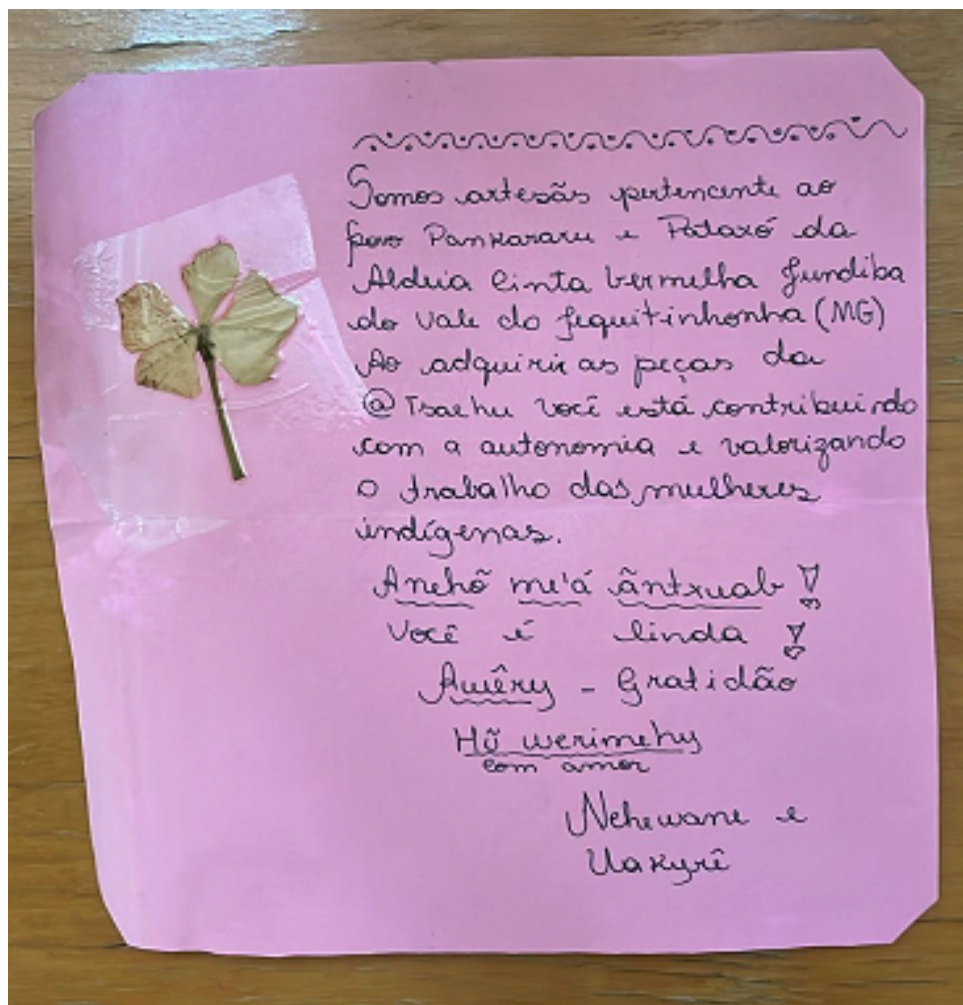 Somos artesãs pertencente ao
povo Pankararu e Pataxó da
Aldeia Cinta Vermelha Jundiba
do Vale do Jequitinhonha (MG)
Ao adquirir as peças da
@Tsaehu você está contribuindo
com a autonomia e valorizando
o trabalho das mulheres
indígenas.
Anehõ me'á ãntxuab!
Você é linda!
Awêry - Gratidão
Hũ werimehy
com amor
Nehewane e
Uakyrê